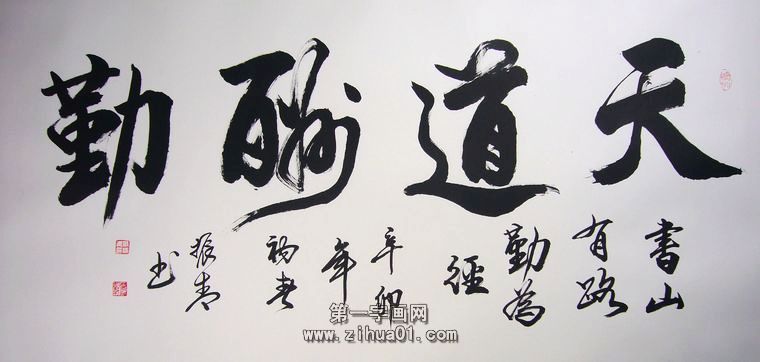 天道酬勤
書山
有路
勤為
徑
辛卯
年
初春
振书
第一字画网
www.zihua01.com